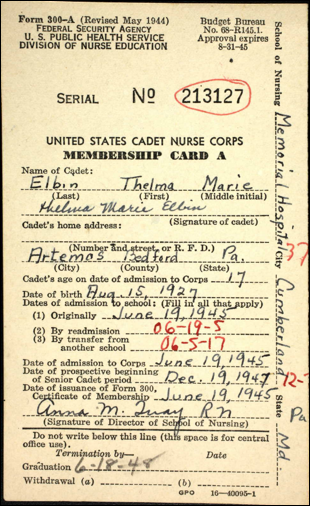 Form 300-A (Revised May 1944)
FEDERAL SECURITY AGENCY
U. S. PUBLIC HEALTH SERVICE
DIVISION OF NURSE EDUCATION
Budget Bureau
No. 68-R145.1.
Approval expires
8-31-45
SERIAL No 213127
UNITED STATES CADET NURSE CORPS
MEMBERSHIP CARD A
Name of Cadet:
Elbin Thelma Marie
(Last) (First) (Middle initial)
Thelma Marie Elbin
(Signature of cadet)
Cadet's home address:
(Number and street, or R. F. D.)
Artemas Bedford Pa.
(City) (County) (State)
Cadet's age on date of admission to Corps 17
Date of birth Aug. 15, 1927
Dates of admission to school: (Fill in all that apply)
(1) Originally June 19, 1945
(2) By readmission 06-19-5
(3) By transfer from
another school 06-5-17
Date of admission to Corps June 19, 1945
Date of prospective beginning
of Senior Cadet period Dec. 19, 1947
Date of issuance of Form 300,
Certificate of Membership June 19, 1945
Anna M. Quay RN
(Signature of Director of School of Nursing)
Do not write below this line (this space is for central
office use).
Termination by— Date
Graduation 6-18-48
Withdrawal (a) (b)
GPO 16—40095-1
School of Nursing Memorial Hospital City Cumberland State Md
37
12-
Pa